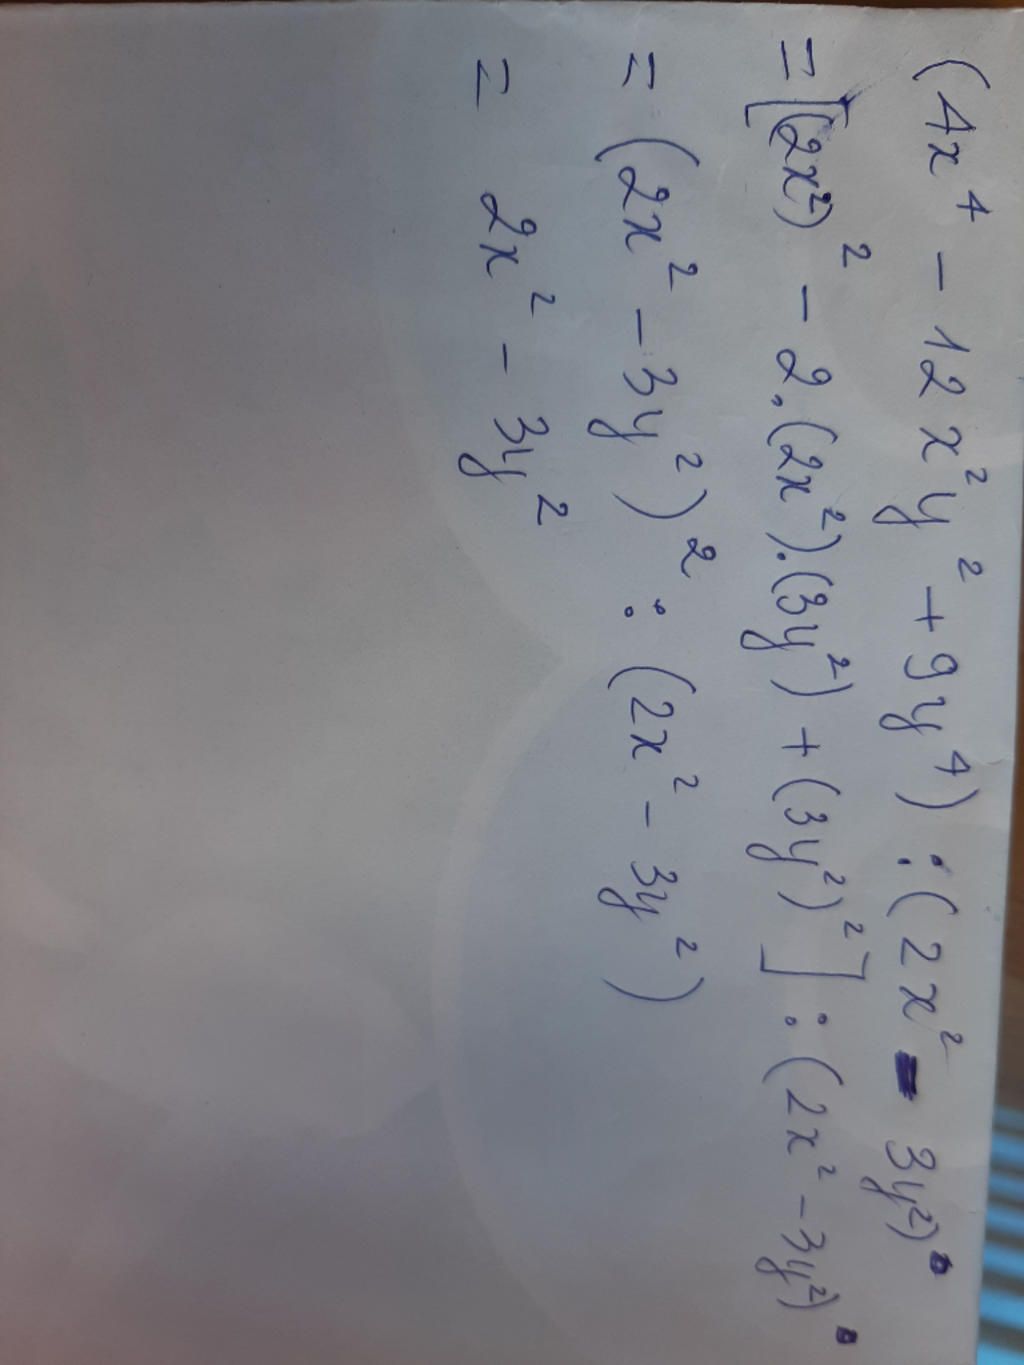 (4x⁴ - 12x²y² + 9y⁴) : (2x² - 3y²)
= [(2x²)² - 2.(2x²).(3y²) + (3y²)²] : (2x² - 3y²)
= (2x² - 3y²)² : (2x² - 3y²)
= 2x² - 3y²